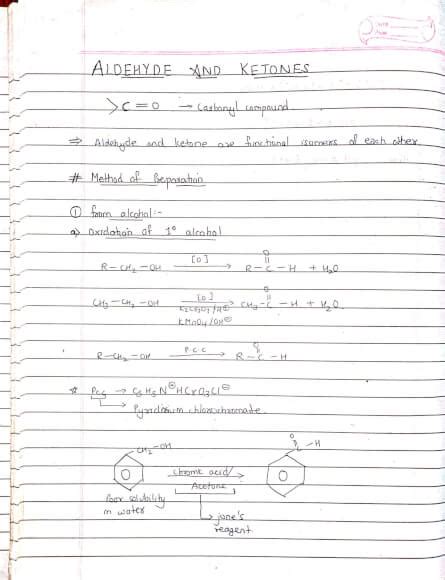 ALDEHYDE AND KETONES
>C=O → Carbonyl compound.
⇒ Aldehyde and ketone are functional isomers of each other.
# Method of Preparation
① from alcohol:-
a) oxidation of 1° alcohol
R-CH2-OH [O] → R-C(=O)-H + H2O
CH3-CH2-OH [O] → CH3-C(=O)-H + H2O
K2Cr2O7/H⊕
KMnO4/OH⊖
R-CH2-OH P.C.C → R-C(=O)-H
☆ PCC → C5H5N⊕HCrO3Cl⊖
→ Pyridinium chlorochromate.
CH2-OH chromic acid/ → C(=O)-H
Acetone
Poor solubility
in water
→ jone's
reagent